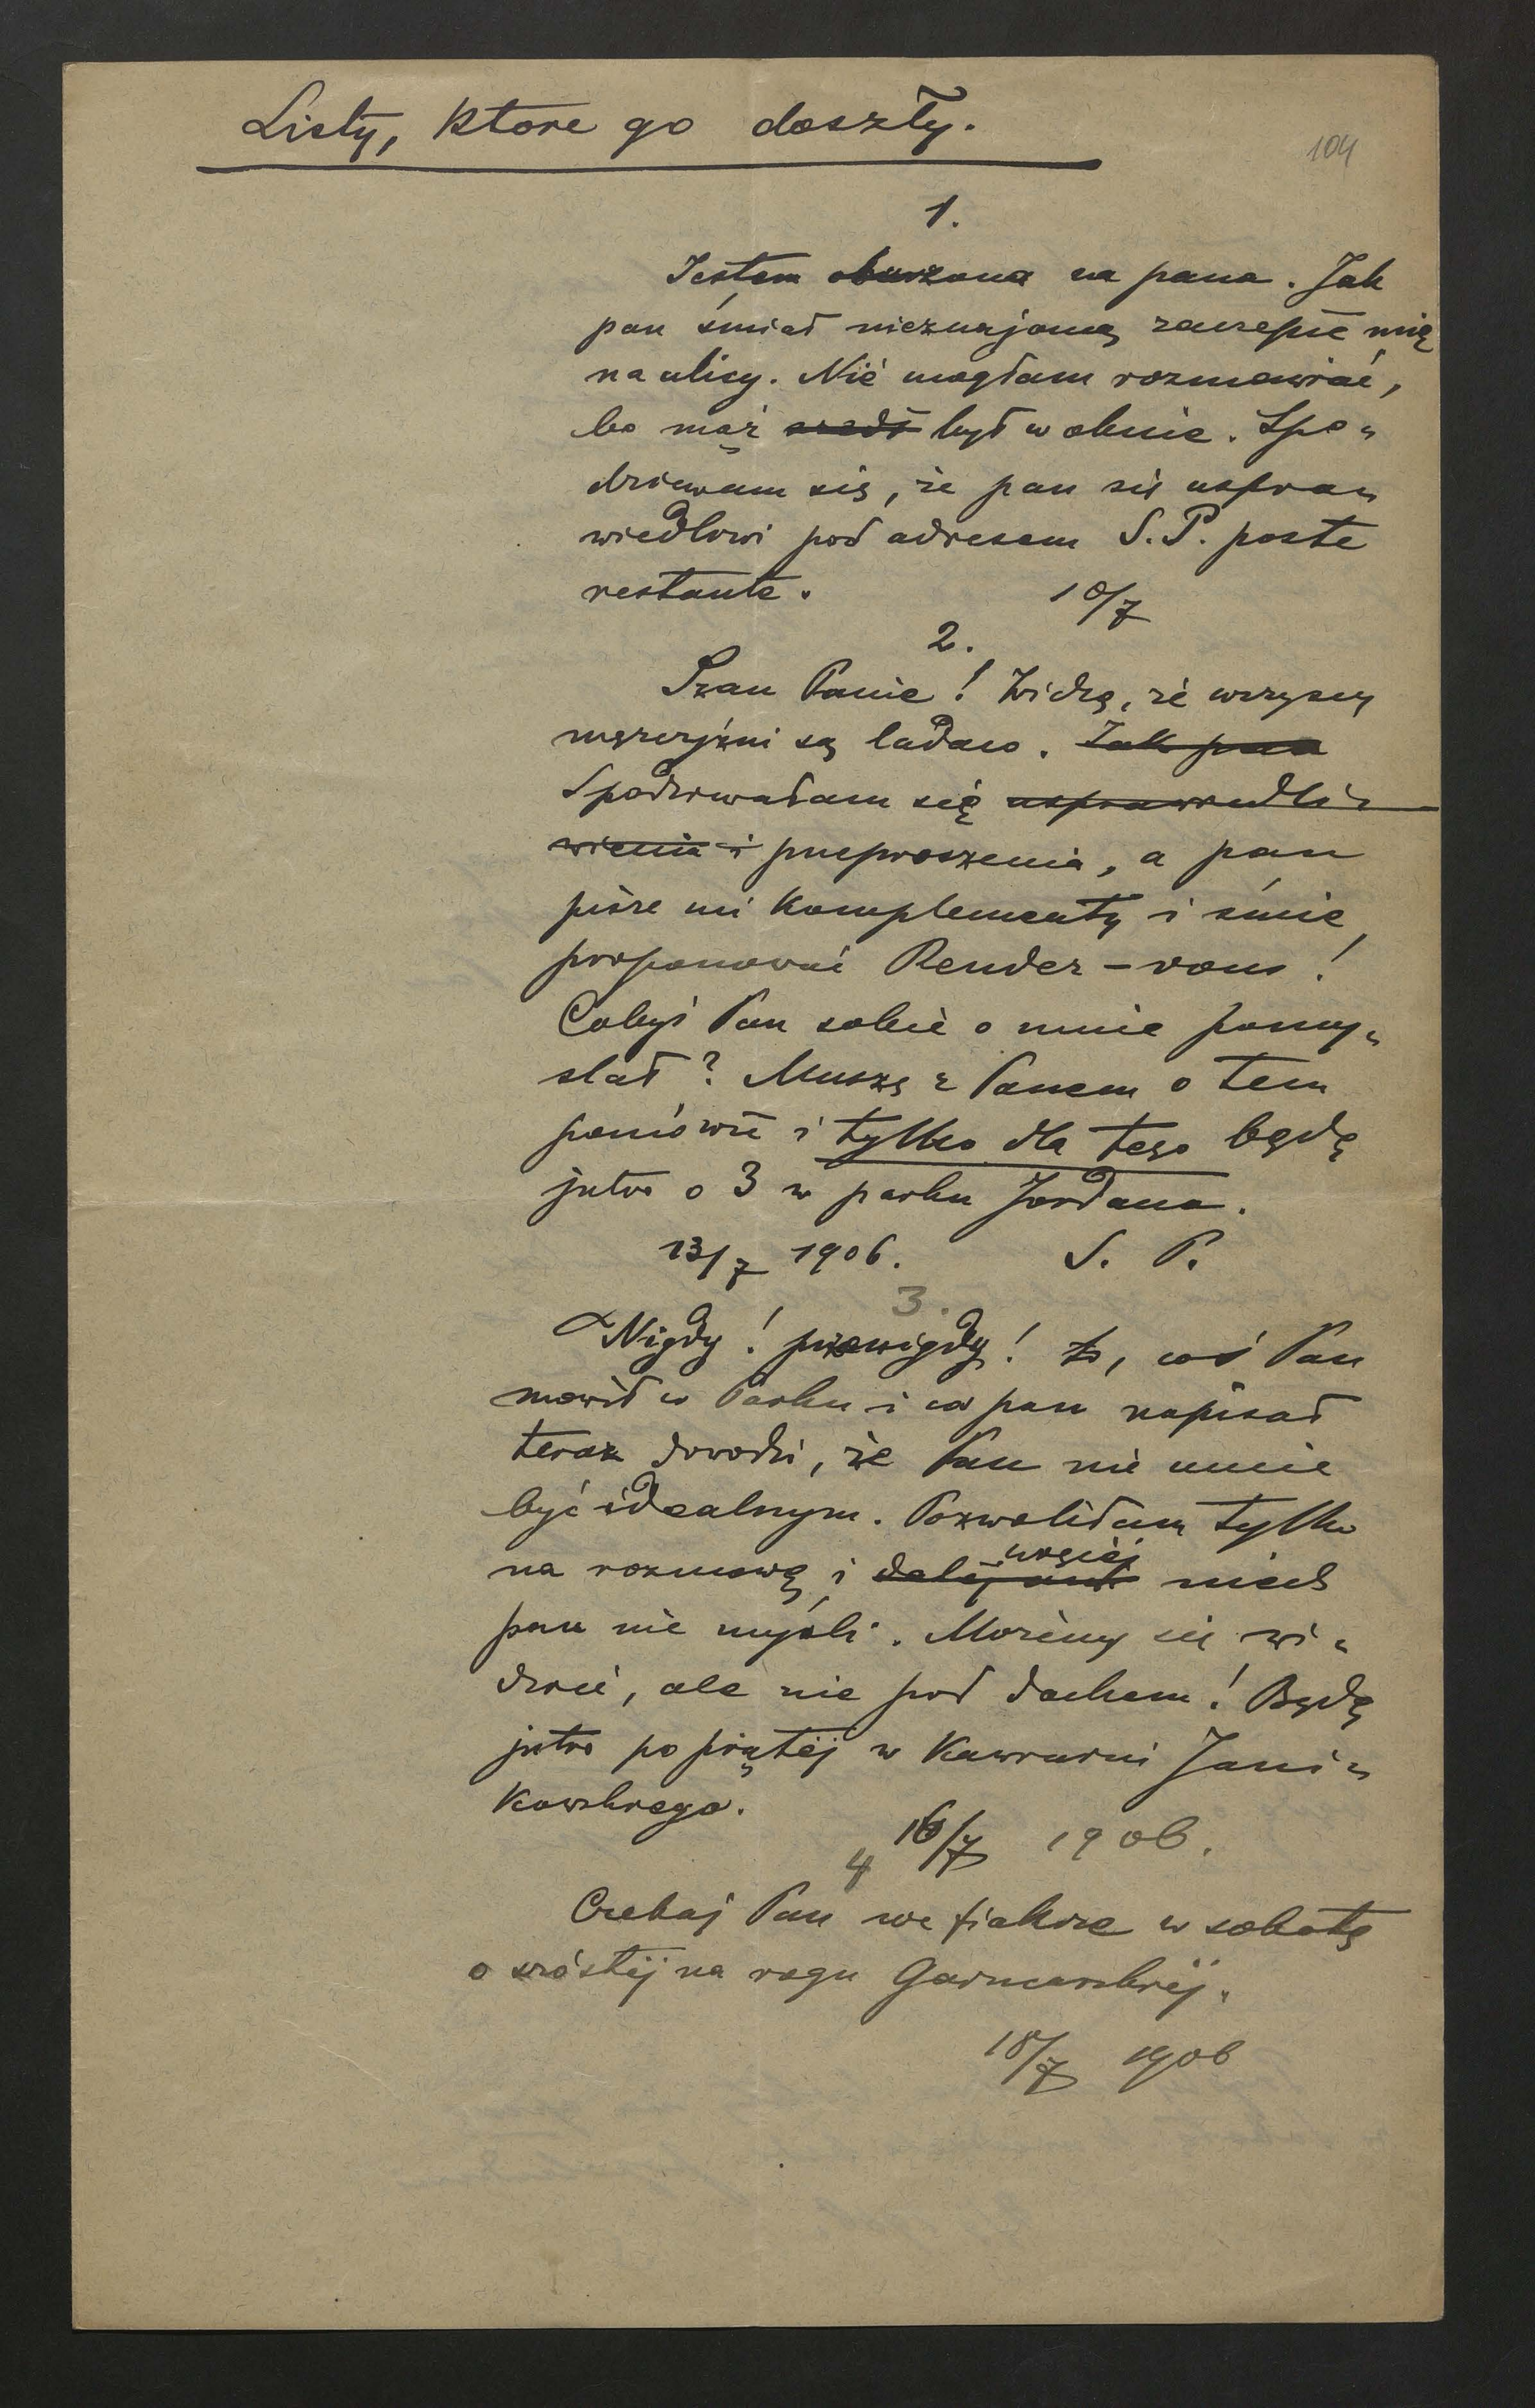 Listy, które go doszły.
104
1.
Jestem oburzona na pana. Jak
pan śmiał nieznajomą zaczepić mię
na ulicy. Nie mogłam rozmawiać,
bo mąż szedł był w oknie. Spo-
dziewam się, że pan się uspra-
wiedlowi pod adresem S. P. poste
restante.
10/7
2.
Szan Panie! Widzę, że wszyscy
mężczyźni są ladaco. Jak pan
Spodziewałam się usprawiedli-
wienia i przeproszenia, a pan
pisze mi komplementy i śmie
proponować Render-vous!
Cobyś Pan sobie o mnie pomy-
slał? Muszę z Panem o tem
pomówić i tylko dla tego będę
jutro o 3 w parku Jordana.
13/7 1906. S. P.
3.
Nigdy! przenigdy! to, coś Pan
mówił w Parku i co pan napisał
teraz dowodzi, że Pan nie umie
być idealnym. Pozwoliłam tylko
na rozmowę i dalej ani więcej niech
pan nie myśli. Możemy się wi-
dzieć, ale nie pod dachem! Będę
jutro po piątej w Kawiarni Jani-
kowskiego.
16/7 1906.
4
Czekaj Pan we fiakrze w sobotę
o szóstej na rogu Garncarskiej.
18/7 1906